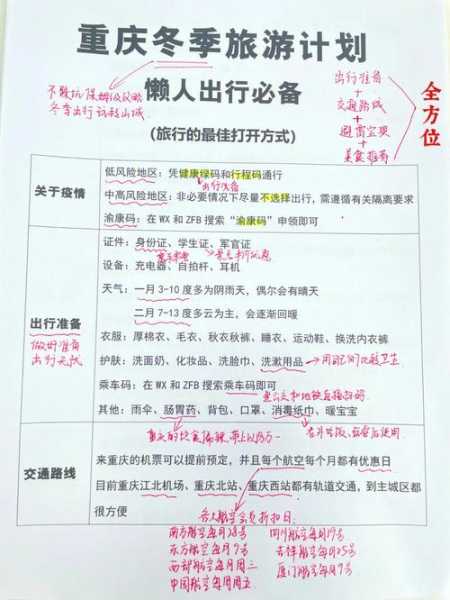 重庆冬季旅游计划
懒人出行必备
(旅行的最佳打开方式)
冬季出行
出行准备
+
交通路线
+
避雷宝典
+
美食推荐
全方位
关于疫情
低风险地区：凭健康绿码和行程码通行
出行准备
中高风险地区：非必要情况下尽量不选择出行，需遵循有关隔离要求
渝康码：在 WX 和 ZFB 搜索“渝康码”申领即可
出行准备
做好准备
出行无忧
证件：身份证、学生证、军官证
设备：充电器、自拍杆、耳机
天气：一月 3-10 度多为阴雨天，偶尔会有晴天
二月 7-13 度多云为主，会逐渐回暖
衣服：厚棉衣、毛衣、秋衣秋裤、睡衣、运动鞋、换洗内衣裤
护肤：洗面奶、化妆品、洗脸巾、洗漱用品
用自己的比较卫生
乘车码：在 WX 和 ZFB 搜索乘车码即可
其他：雨伞、肠胃药、背包、口罩、消毒纸巾、暖宝宝
交通路线
来重庆的机票可以提前预定，并且每个航空每个月都有优惠日
目前重庆江北机场、重庆北站、重庆西站都有轨道交通，到主城区都
很方便
各大航空会员折扣日
南方航空每月28号
四川航空每月19号
东方航空每月9号
吉祥航空每月25号
西部航空每月周三
厦门航空每月9号
中国航空每月周五